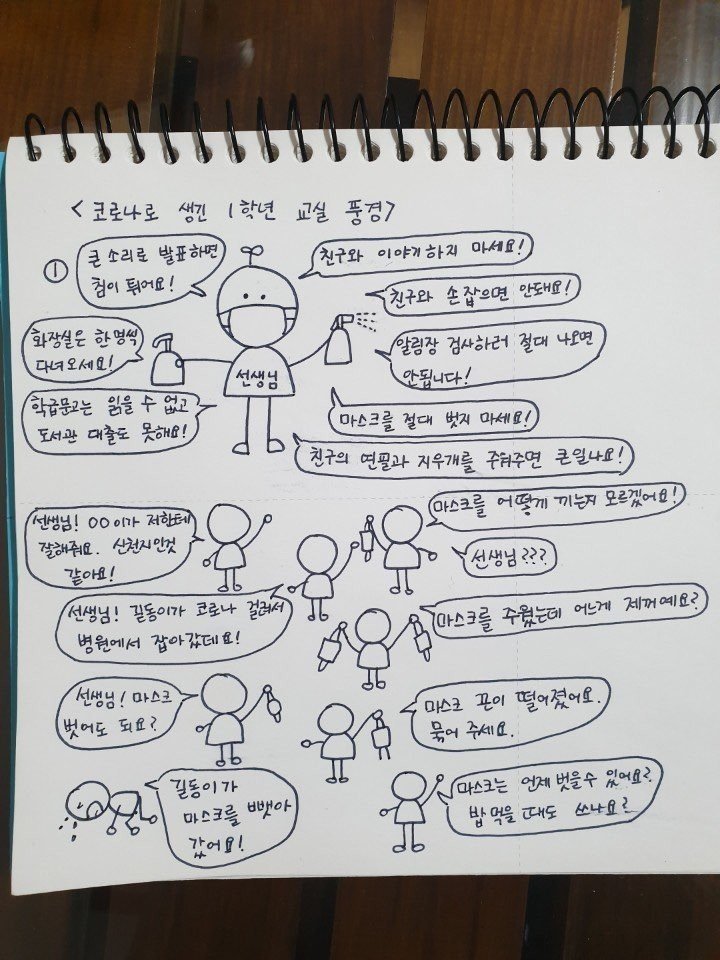 <코로나로 생긴 1학년 교실 풍경>
①
큰 소리로 발표하면
침이 튀어요!
친구와 이야기하지 마세요!
친구와 손 잡으면 안돼요!
화장실은 한명씩
다녀오세요!
알림장 검사하러 절대 나오면
안됩니다!
선생님
학급문고는 읽을 수 없고
도서관 대출도 못해요!
마스크를 절대 벗지 마세요!
친구의 연필과 지우개를 주워주면 큰일나요!
선생님! OO이가 저한테
잘해줘요. 신천지인것
같아요!
마스크를 어떻게 끼는지 모르겠어요!
선생님???
선생님! 길동이가 코로나 걸려서
병원에서 잡아갔데요!
마스크를 주웠는데 어느게 제꺼예요?
선생님! 마스크
벗어도 되요?
마스크 끈이 떨어졌어요.
묶어 주세요.
길동이가
마스크를 뺏아
갔어요!
마스크는 언제 벗을수 있어요?
밥 먹을 때도 쓰나요?